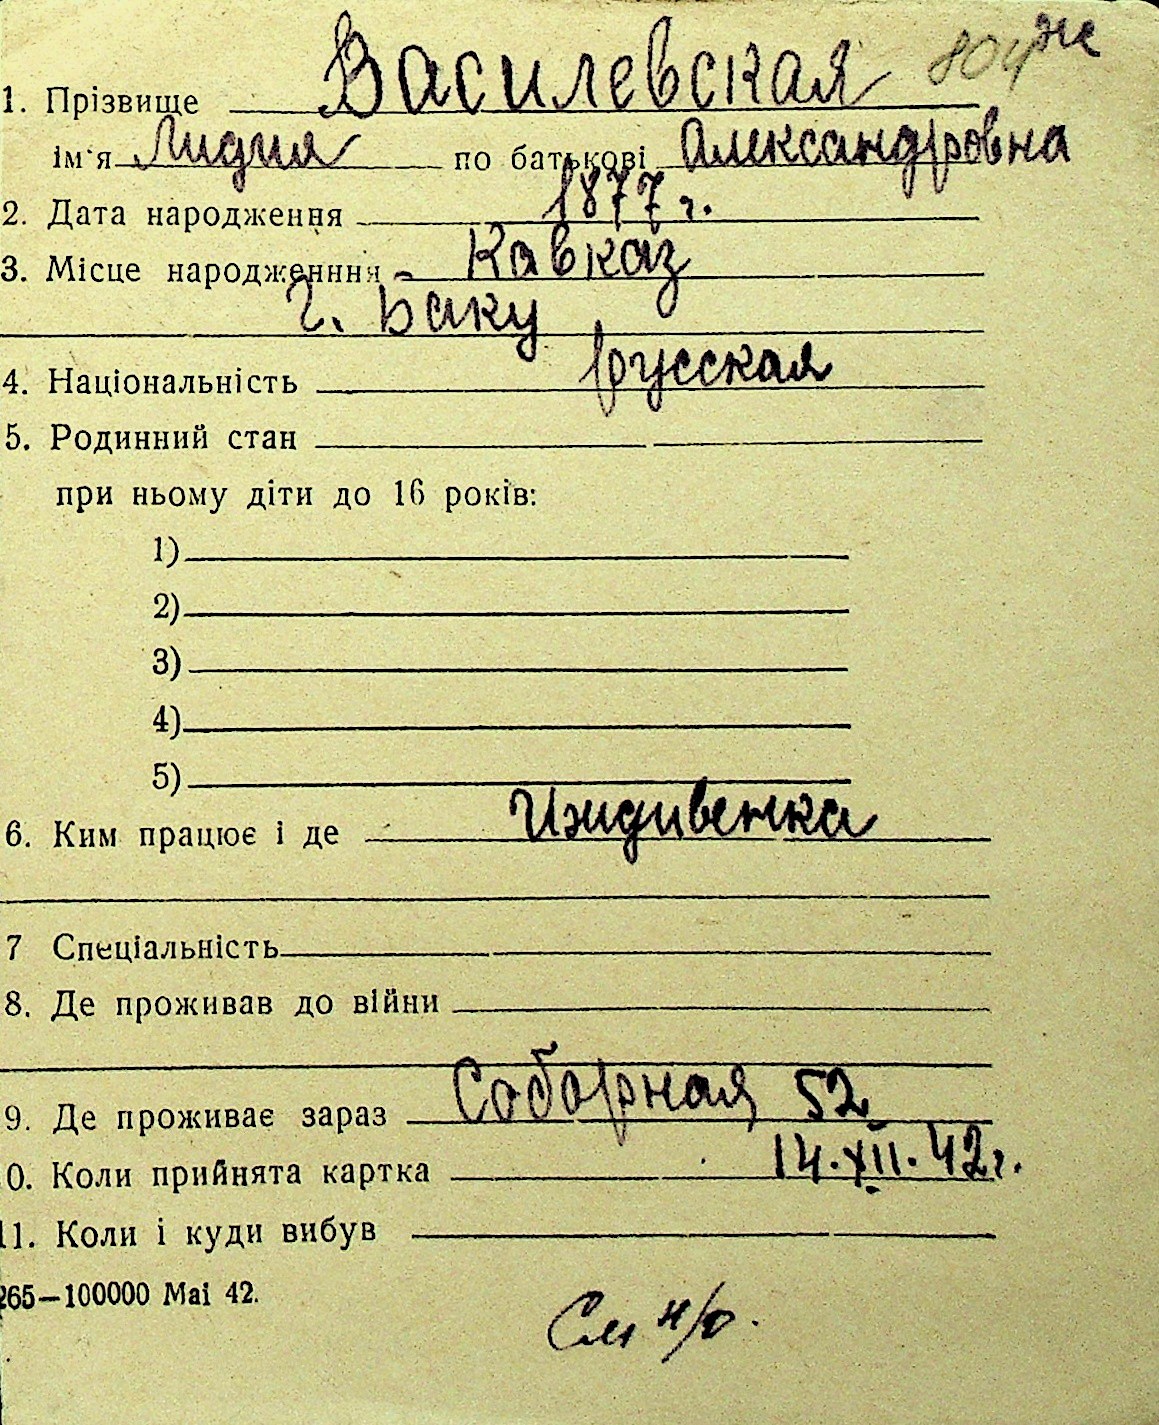 804 же
1. Прізвище Василевская
ім'я Лидия по батькові Александровна
2. Дата народження 1877 г.
3. Місце народженння - Кавказ
г. Баку
4. Національність русская
5. Родинний стан
при ньому діти до 16 років:
1)
2)
3)
4)
5)
6. Ким працює і де Иждивенка
7 Спеціальність
8. Де проживав до війни
9. Де проживає зараз Соборная 52
0. Коли прийнята картка 14.XII.42г.
11. Коли і куди вибув
265—100000 Mai 42.
См н/о.